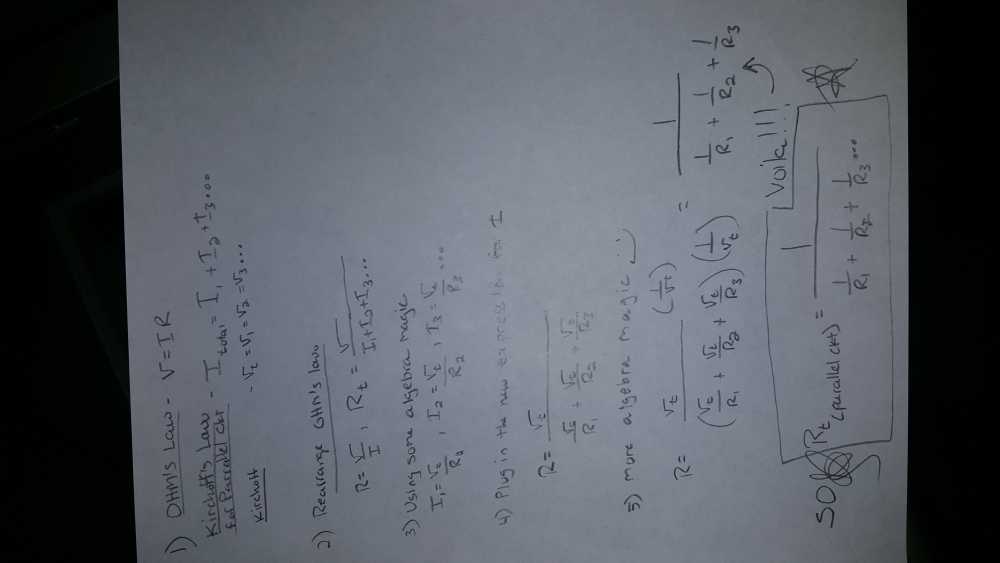 1) OHM'S LAW - V = IR
Kirchoff's Law for Parrallel ckt - I total = I₁ + I₂ + I₃...
Kirchoff - Vt = V₁ = V₂ = V₃...
2) Rearrange OHM's law
R = V/I, Rt = V/(I₁+I₂+I₃...)
3) Using some algebra magic
I₁ = Vt/R₁, I₂ = Vt/R₂, I₃ = Vt/R₃...
4) Plug in the new expression for I
R = Vt/(Vt/R₁ + Vt/R₂ + Vt/R₃)
5) more algebra magic :)
R = Vt (1/Vt) / (Vt/R₁ + Vt/R₂ + Vt/R₃)(1/Vt) = 1/(1/R₁ + 1/R₂ + 1/R₃)
Voila!!!
SO Rt (parallel ckt) = 1/(1/R₁ + 1/R₂ + 1/R₃...)